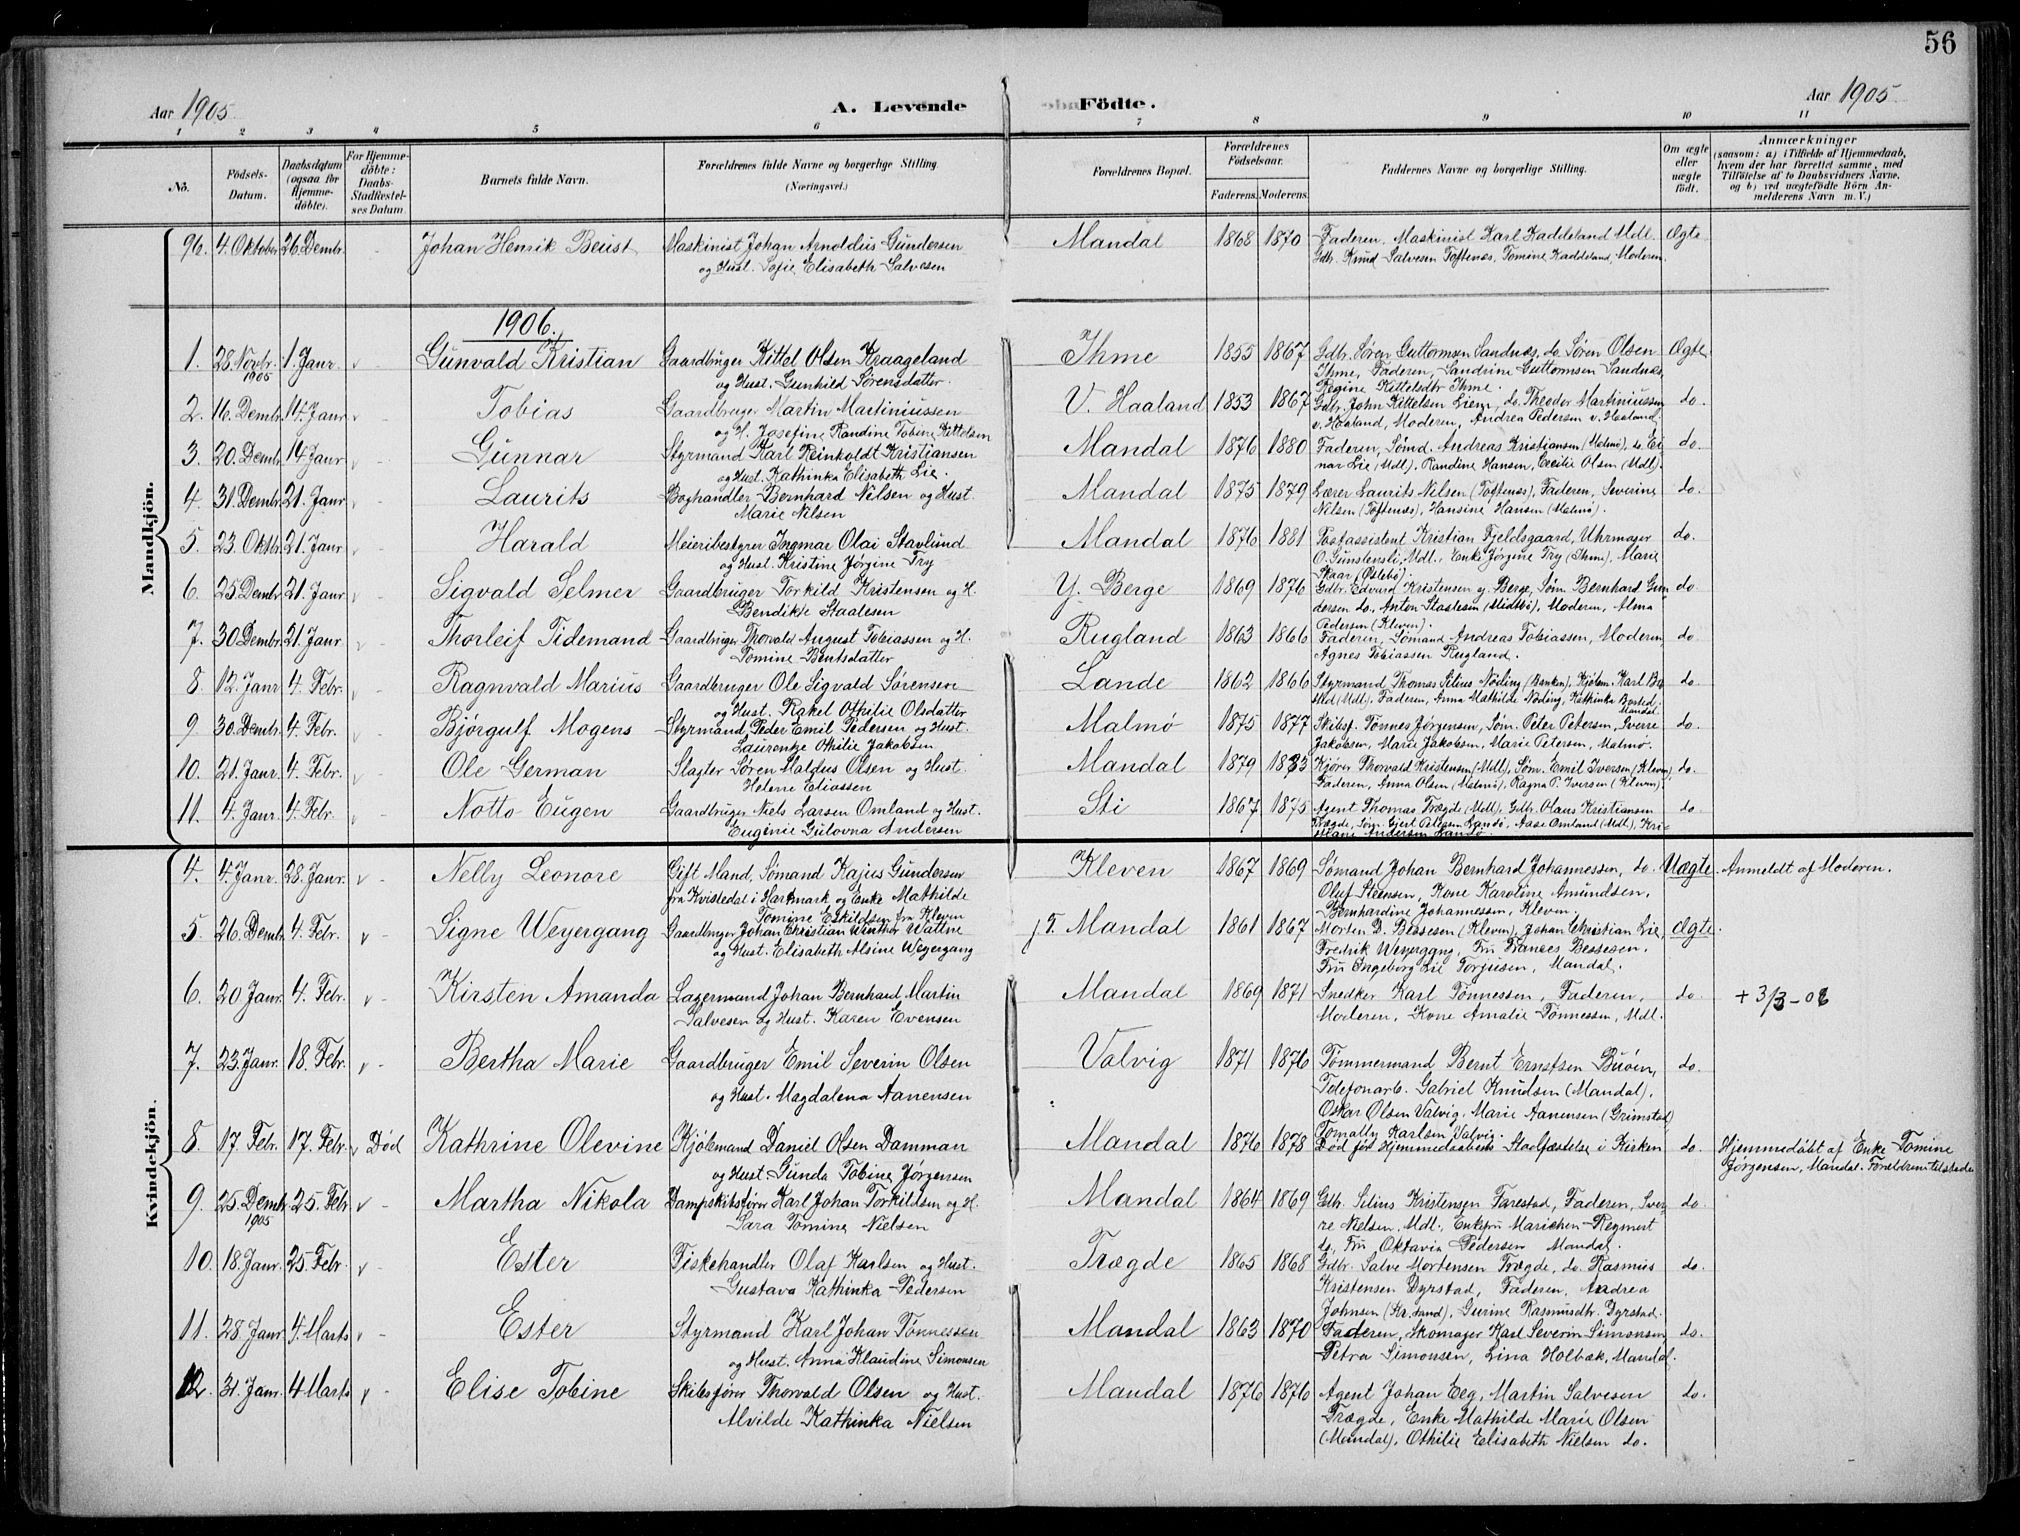 56
Aar 1905 A. Levende Födte. Aar 1905
1 2 3 4 5 6 7 8 9 10 11
No. Födsels-Datum. Daabsdatum (ogsaa for Hjemme-döbte). For Hjemme-döbte: Daabs-Stadfæstel-ses Datum. Barnets fulde Navn. Forældrenes fulde Navne og borgerlige Stilling (Næringsvei.) Forældrenes Bopæl. Forældrenes Födselsaar. Faderens. Moderens. Faddernes Navne og borgerlige Stilling. Om ægte eller uægte födt. Anmærkninger (saasom: a) i Tilfælde af Hjemmedaab, hvem der har forrettet samme, med Tilföielse af to Daabsvidners Navne, og b) ved uægtefödte Börn An-melderens Navn m. V.)
Mandkjön.
96. 4 Oktober 26 Dembr. Johan Henrik Beust Maskinist Johan Arnoldus Gundersen Mandal 1868 1870 Faderen, Maskinist Karl Kaddeland Mdl. Ægte
og Hust. Sofie Elisabeth Salvesen Gdb. Knud Salvesen Toftenes, Tomine Kaddeland, Moderen.
1906.
1. 28 Novbr. 1905 1. Janr. Gunvald Kristian Gaardbruger Kittel Olsen Kraageland Ihme 1855 1867 Gdb. Søren Guttormsen Sandnæs, do. Søren Olsen Ægte
og Hust. Gunhild Sørensdatter. Ihme, Faderen, Sandrine Guttormsen Sandnæs,
Regine Kittelsdtr Ihme.
2. 16. Dembr. 14 Janr. Tobias Gaardbruger Martin Martiniussen V. Haaland 1853 1867 Gdb. John Kittelsen Liem, do. Theodor Martiniussen do.
og H. Josefine Randine Tobine Kittelsen v. Haaland, Moderen, Andrea Pedersen v. Haaland.
3. 20. Dembr. 14 Janr Gunnar Styrmand Karl Reinholdt Kristiansen Mandal 1876 1880 Faderen, Sømd. Andreas Kristiansen (Malmø), do. Ei- do.
og Hust. Kathinka Elisabeth Lie. nar Lie (Mdl). Randine Hansen, Cecilie Olsen (Mdl).
4 31 Dembr. 21. Janr Laurits Boghandler Bernhard Nilsen og Hust. Mandal 1875 1879 Lærer Laurits Nilsen (Toftenes), Faderen, Severine do.
Marie Nilsen Nilsen (Toftenæs), Hansine Hansen (Malmø).
5. 23. Oktbr. 21. Janr Harald Meieribestyrer Ingmar Olai Stavlund Mandal 1876 1881 Postassistent Kristian Fjeldsgaard, Uhrmager do.
og Hust. Kristine Jørgine Try O. Gunstensli, Mdl., Enke Jørgine Try (Ihme), Marie
Skaar (Øslebø).
6. 25 Dembr. 21. Janr Sigvald Selmer Gaardbruger Torkild Kristensen og H. Y. Berge 1869 1876 Gdbr. Edvard Kristensen y Berge, Søm. Bernhard Gun do.
Bendikte Staalesen dersen do, Anton Staalesen (Midtbø), Moderen, Alma
Pedersen (Kleven).
7. 30 Dembr. 21. Janr Thorleif Tidemand Gaardbruger Thorvald August Tobiassen og H. Rugland 1863 1866 Faderen, Sømand Andreas Tobiassen, Moderen, do
Tomine Berntsdatter Agnes Tobiassen Rugland.
8. 12. Janr 4. Febr. Ragnvald Marius Gaardbruger Ole Sigvald Sørensen Lande 1862 1866 Styrmand Thomas Silius Nøding (Banken), Kjølem. Karl Bu do.
og Hust. Rakel Othilie Olsdatter Mandal.
9 30. Dembr. 4. Febr. Bjørgulf Mogens Styrmand Peder Emil Pedersen og Hust. Malmø 1875 1877 Skibsf. Tønnes Jørgensen, Søm. Peter Petersen, Sverre do.
Laurentze Othilie Jakobsen Jakobsen, Marie Jakobsen, Marie Petersen, Malmø.
10. 21. Janr. 4. Febr. Ole German Slagter Søren Maldus Olsen og Hust. Mandal 1879 1883 Kjører Thorvald Kristensen (Mdl), Søm. Emil Iversen (Kleven), do.
Helene Eliassen Faderen, Anna Olsen (Malmø), Ragna P. Iversen (Kleven).
11. 4. Janr. 4. Febr. Notto Eugen Gaardbruger Niels Larsen Omland og Hust. Sti 1867 1875 Agent Thomas Trægde (Mdl), Gdb. Olaus Kristiansen do
Eugenie Gulovna Andersen Trægde, Søm. Gjert Petersen Landø, Aase Omland (Mdl), Kri-
stiane Andersen Landø.
Kvindekjön.
4. 4. Janr. 28. Janr. Nelly Leonore Gift Mand, Sømand Kajus Gundersen Kleven 1867 1869 Sømand Johan Bernhard Johannessen, do. Uægte. Anmeldt af Moderen.
fra Kvistedal i Hartmark og Enke Mathilde Oluf Steensen, Kone Karoline Amundsen,
Tomine Eskildsen fra Kleven Bernhardine Johannessen, Kleven.
5 26. Dembr. 4. Febr. Signe Weyergang Gaardbruger Johan Christian Winther Wattne j. T. Mandal 1861 1867 Morten D. Bessesen (Kleven), Johan Christian Lie, Ægte.
og Hust. Elisabeth Alsine Weyergang Fredrik Weyergang, Fru Frances Bessesen.
Fru Ingeborg Lie Torjusen, Mandal.
6. 20 Janr. 4. Febr. Kirsten Amanda Lagermand Johan Bernhard Martin Mandal 1869 1871 Snedker Karl Tønnessen, Faderen, do. + 3/3 - 08
Salvesen og Hust. Karen Evensen Moderen, Kone Amalie Tønnessen, Mdl.
7. 23. Janr. 18. Febr. Bertha Marie Gaardbruger Emil Severin Olsen Valvig 1871 1876 Tømmermand Bernt Ernstsen Buøen, do.
og Hust. Magdalena Aanensen Telefonarb. Gabriel Knudsen (Mandal),
Oskar Olsen Valvig, Marie Aanensen (Grimstad)
Karlsen Valvig.
8. 17. Febr. 17. Febr. Død Kathrine Olevine Kjølemand Daniel Olsen Damman Mandal 1876 1878 Død før Hjemmedaabens Stadfæstelse i Kirken do. Hjemmedøbt af Enke Tomine
og Hust. Gunda Tobine Jørgensen Jørgensen, Mandal. Forældrene tilstede
9. 25. Dembr. 1905 25. Febr. Martha Nikola Dampskibsfører Karl Johan Torkildsen og H. Mandal 1864 1869 Gdb. Silius Kristensen Farestad, Faderen, Sver- do.
Sara Tomine Nielsen re Nielsen, Mdl, Enkefru Marichen Regnert
do, Fru Oktavia Pedersen Mandal.
10. 18. Janr. 25. Febr. Ester Fiskehandler Olaf Karlsen og Hust. Trægde 1865 1868 Gdbr. Salve Mortensen Trægde, do. Rasmus do.
Gustava Kathinka Pedersen Kristensen Dyrstad, Faderen, Andrea
Johnsen (Kr.sand), Gurine Rasmusdtr. Dyrstad.
11. 28 Janr 4. Marts Ester Styrmand Karl Johan Tønnessen Mandal 1863 1870 Faderen, Skomager Karl Severin Simonsen do.
og Hust. Anna Klaudine Simonsen Petra Simonsen, Lina Holbæk, Mandal.
12. 31. Janr. 4 Marts Elise Tobine Skibsfører Thorvald Olsen og Hust. Mandal 1876 1876 Agent Johan Eeg, Martin Salvesen do.
Alvilde Kathinka Nielsen Trægde, Enke Mathilde Marie Olsen
(Mandal), Othilie Elisabeth Nielsen do.